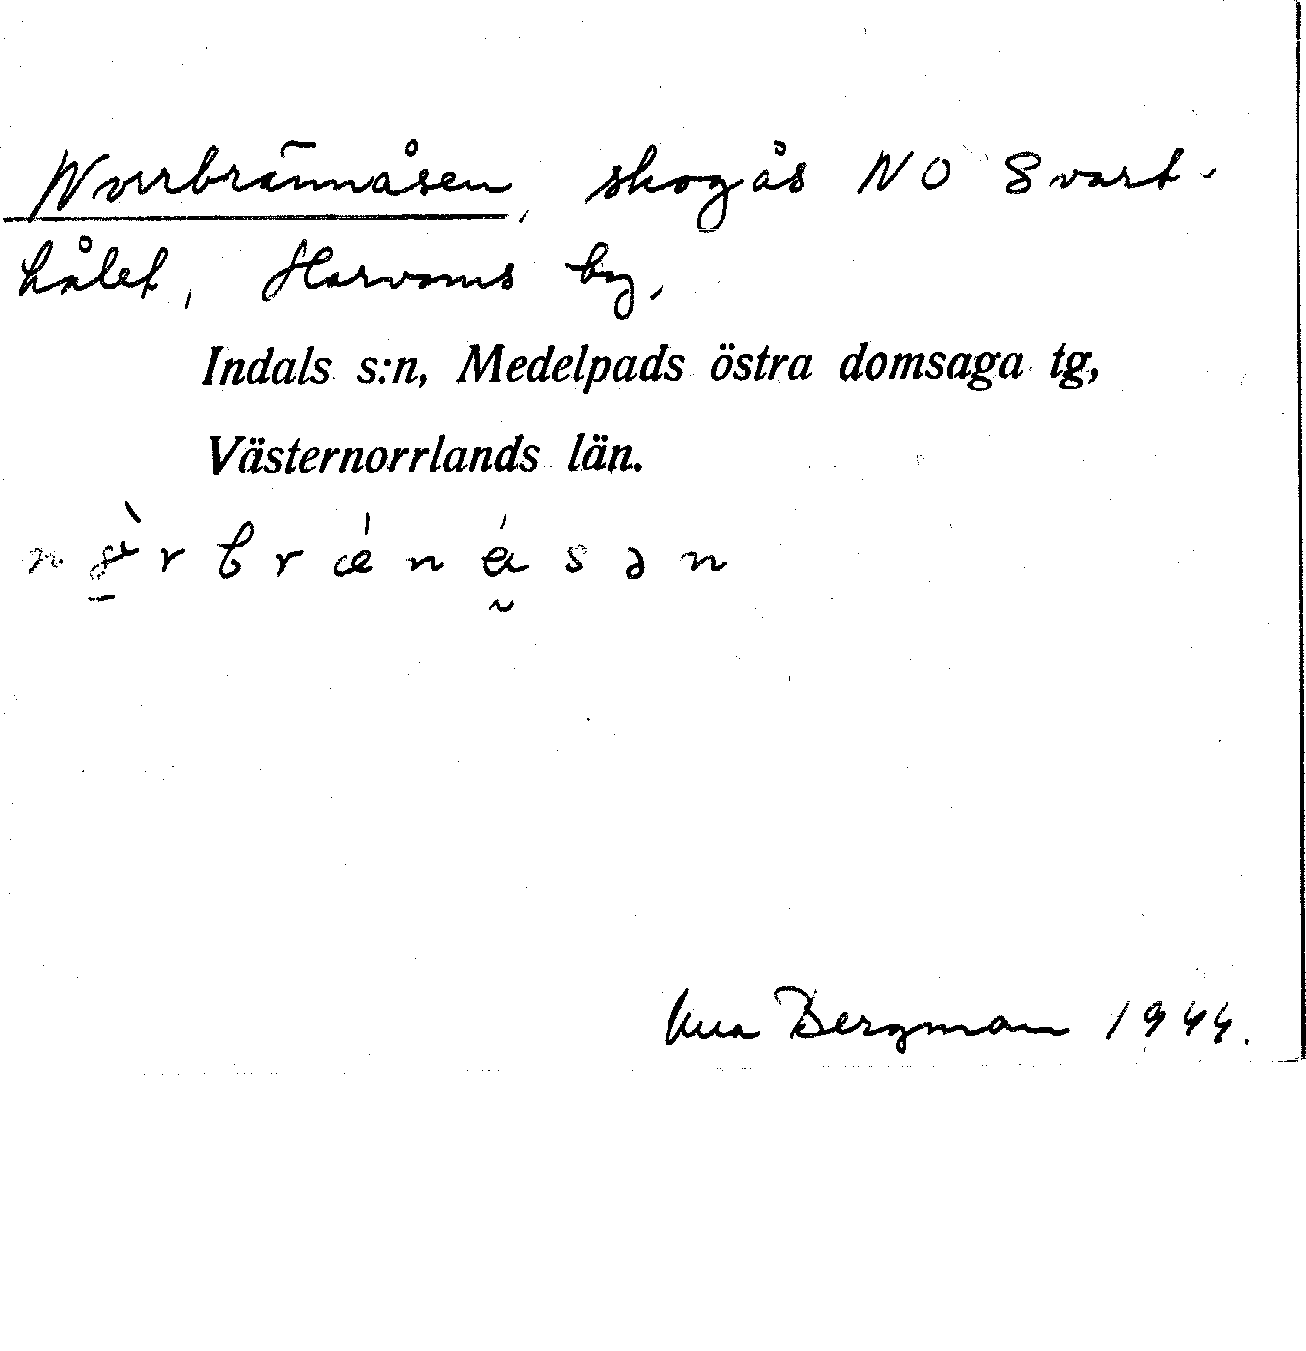 Norrbrännåsen, skogås NO Svart-
hålet, Harvoms by.
Indals s:n, Medelpads östra domsaga tg,
Västernorrlands län.
Bergman 1944.